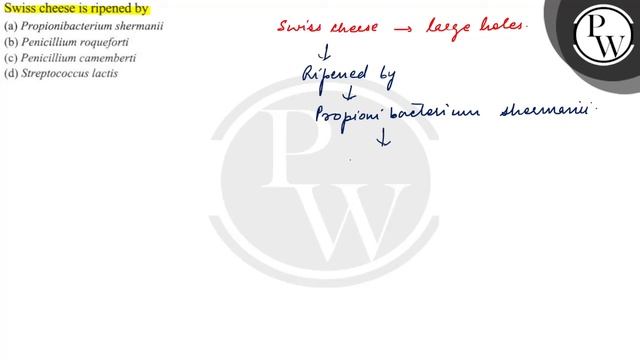 Swiss cheese is ripened by
(a) Propionibacterium shermanii
(b) Penicillium roqueforti
(c) Penicillium camemberti
(d) Streptococcus lactis
Swiss cheese → large holes.
↓
Ripened by
↓
Propionibacterium shermanii.
↓
PW
PW